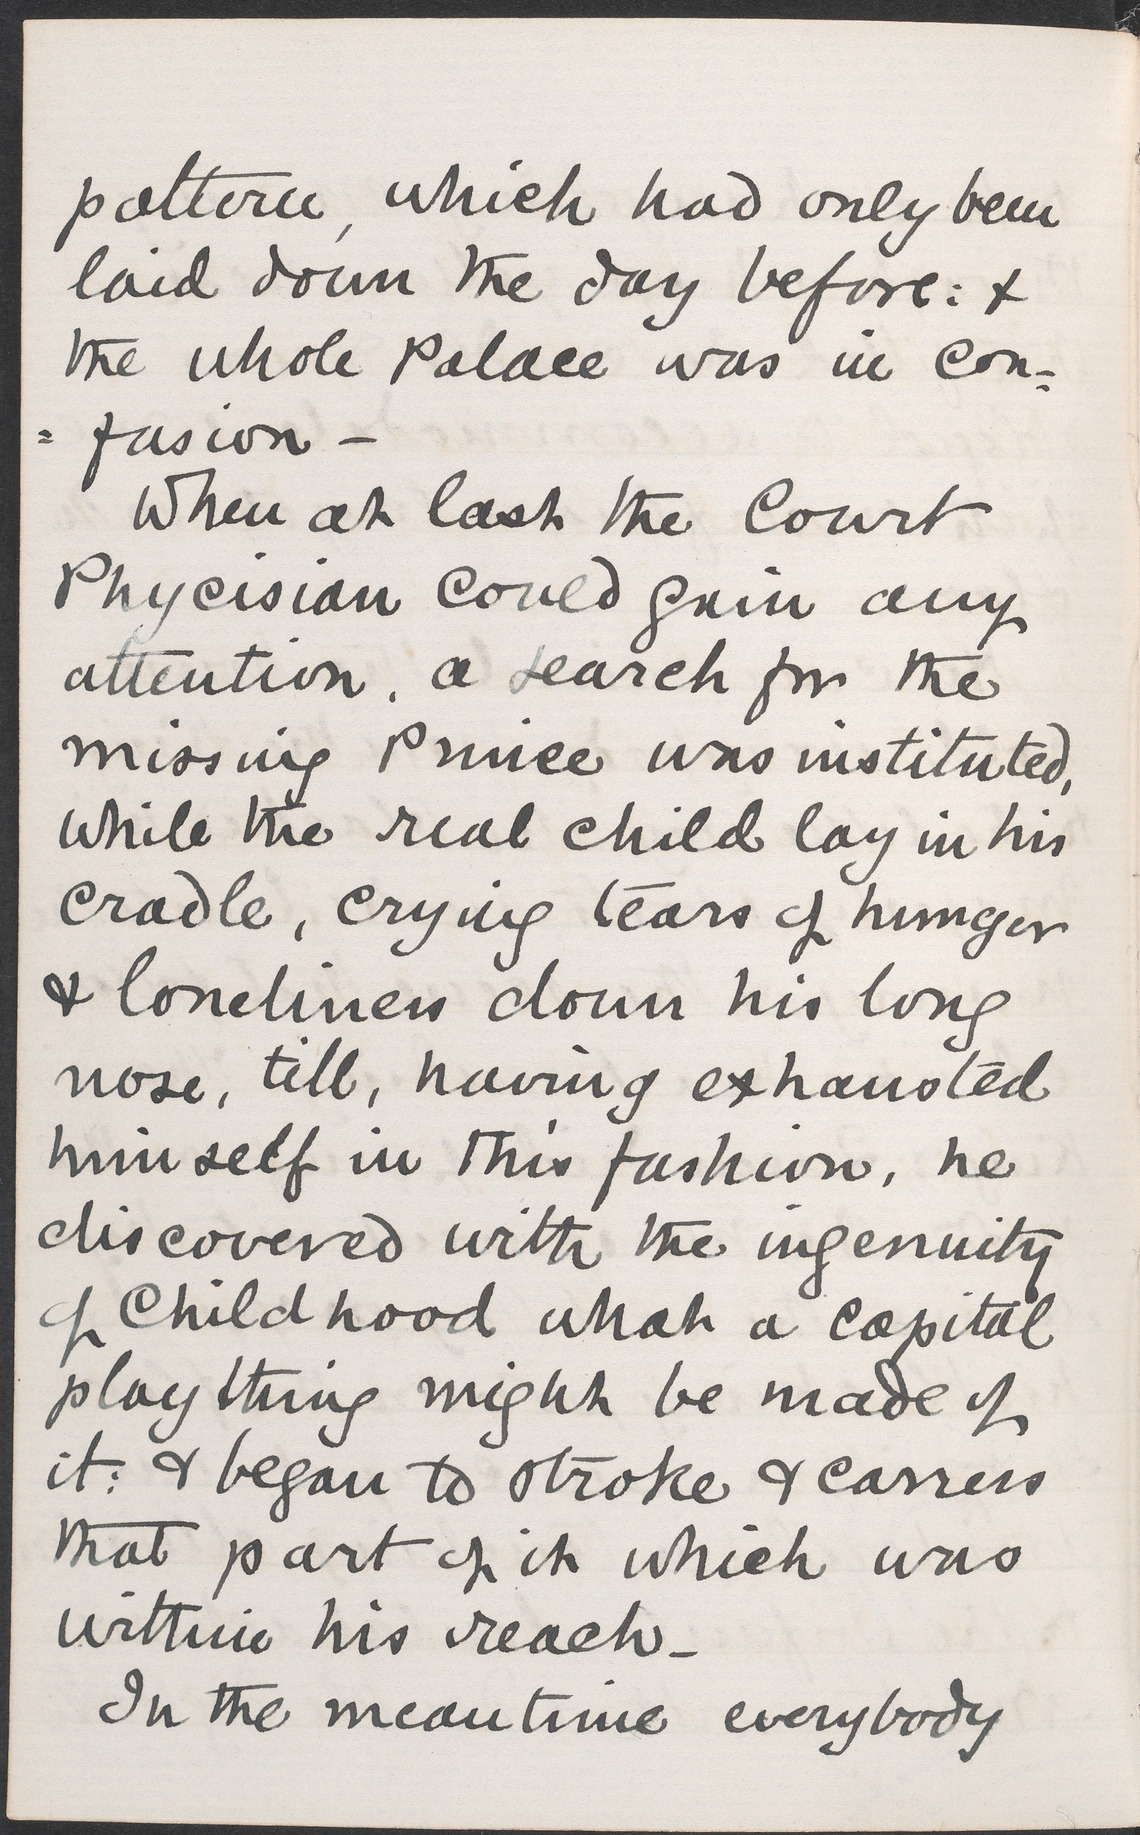 pattern, which had only been
laid down the day before: &
the whole Palace was in con=
= fusion -
When at last the Court
Phycisian could gain any
attention, a search for the
missing Prince was instituted,
while the real child lay in his
cradle, crying tears of hunger
& loneliness down his long
nose, till, having exhausted
himself in this fashion, he
discovered with the ingenuity
of Childhood what a capital
plaything might be made of
it: & began to stroke & carress
that part of it which was
within his reach -
In the meantime everybody